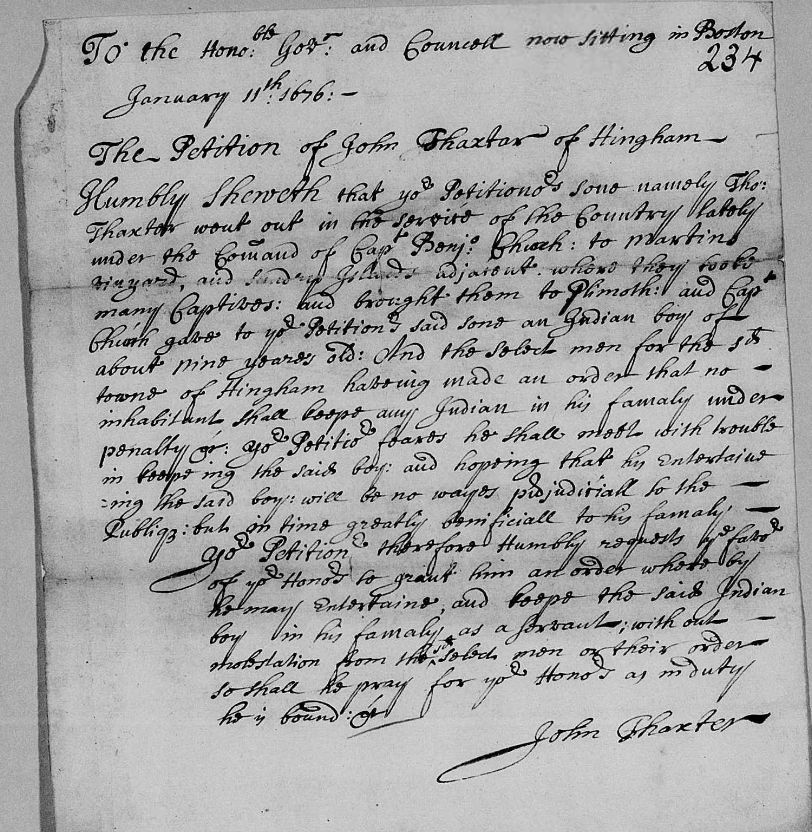 To the Hono:ble Gov:r and Councell now sitting in Boston
234
January 11th: 1676:-
The Petition of John Thaxtar of Hingham
Humbly Sheweth that yor Petitionors sone namely Tho:
Thaxter went out in the service of the Country lately
under the Comand of Capt Benj: Church: to Martins
vinyard, and sundry Islands adjacent: where they tooke
many Captives: and brought them to Plimoth: and Capt
Church gave to yor Petitionrs said sone an Indian boy of
about nine yeares old: And the select men for the sd
towne of Hingham haveing made an order that no -
inhabitant shall keepe any Indian in his famaly under
penalty &c: yor Petitior feares he shall meet with trouble
in keepeing the said boy: and hopeing that his Entertaine
-ing the said boy: will be no wayes pidjudiciall to the -
Publiq: but in time greatly benificiall to his famaly -
Yor Petitionr therefore Humbly requests ye favor
of yor Honors to grant him an order where by
he may Entertaine, and keepe the said Indian
boy in his famaly as a servant; without -
molestation from the sd select men or their order
so shall he pray for yor Honors as in duty
he is bound: &c
John Thaxter